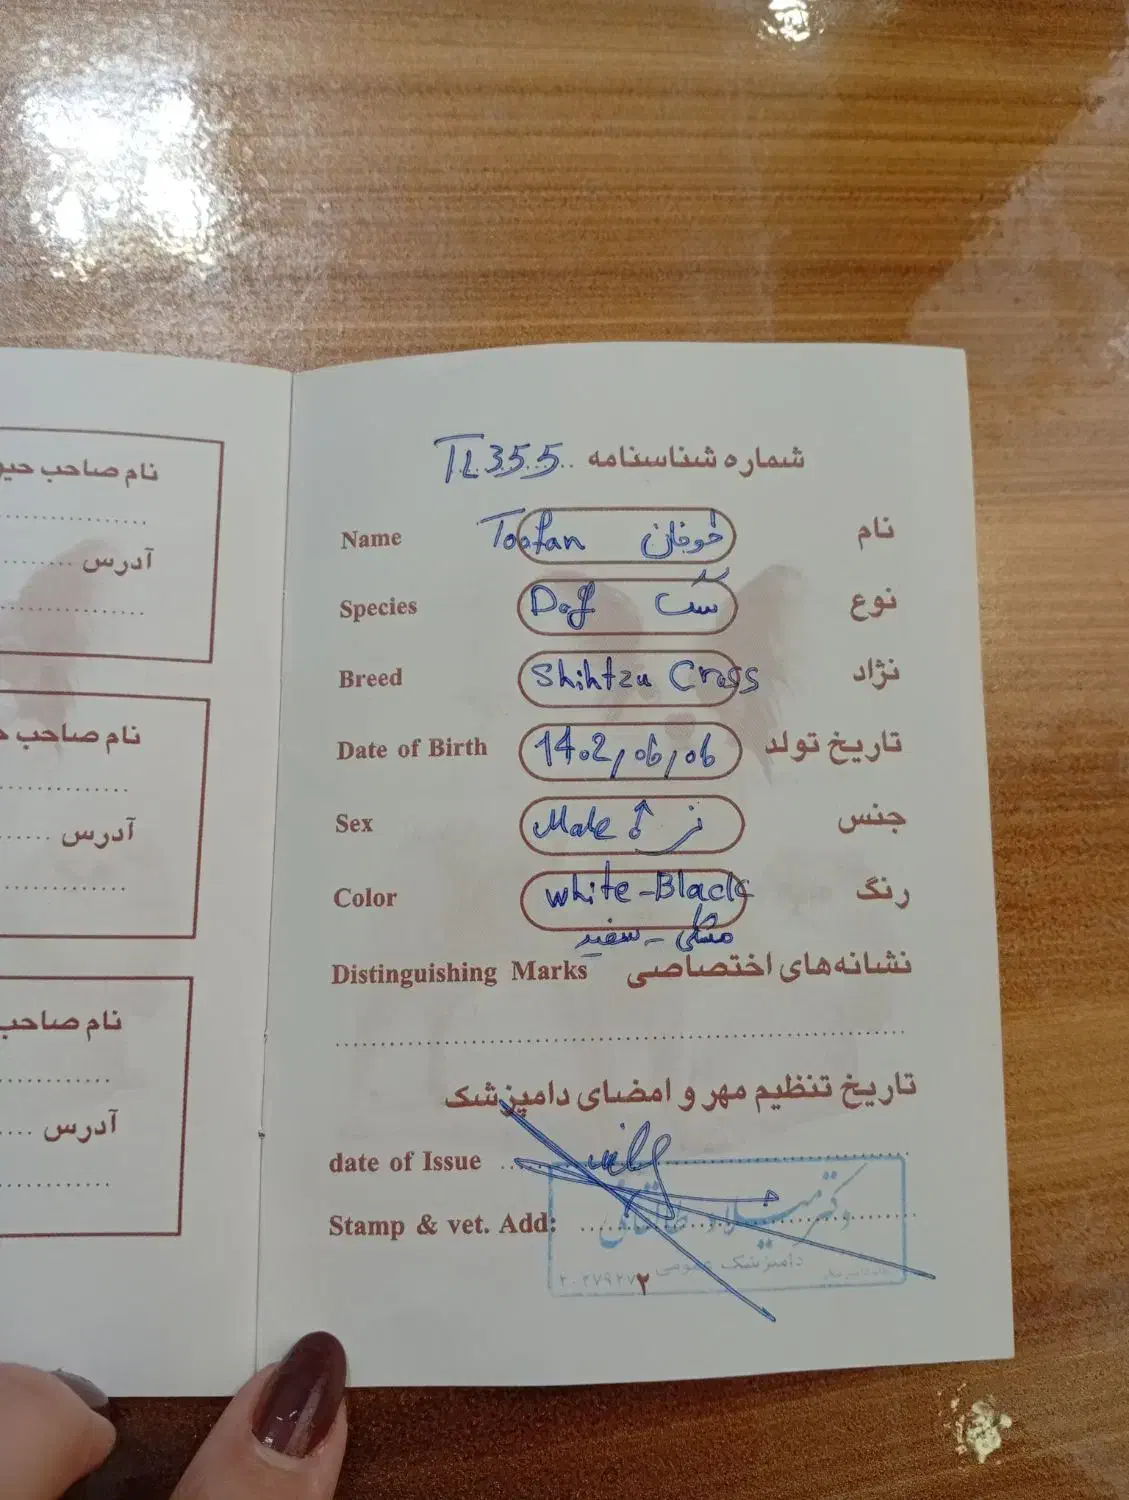 نام صاحب
آدرس
نام صاحب
آدرس
نام صاحب
آدرس
شماره شناسنامه TL355
Name Toofan طوفان نام
Species Dog سگ نوع
Breed Shihtzu Cross نژاد
Date of Birth 1402/06/06 تاریخ تولد
Sex Male ♂ نر جنس
Color white-Black رنگ
مشکی - سفید
Distinguishing Marks نشانه‌های اختصاصی
تاریخ تنظیم مهر و امضای دامپزشک
date of Issue
Stamp & vet. Add:
دکتر میلاد طالقانی
دامپزشک عمومی
۲